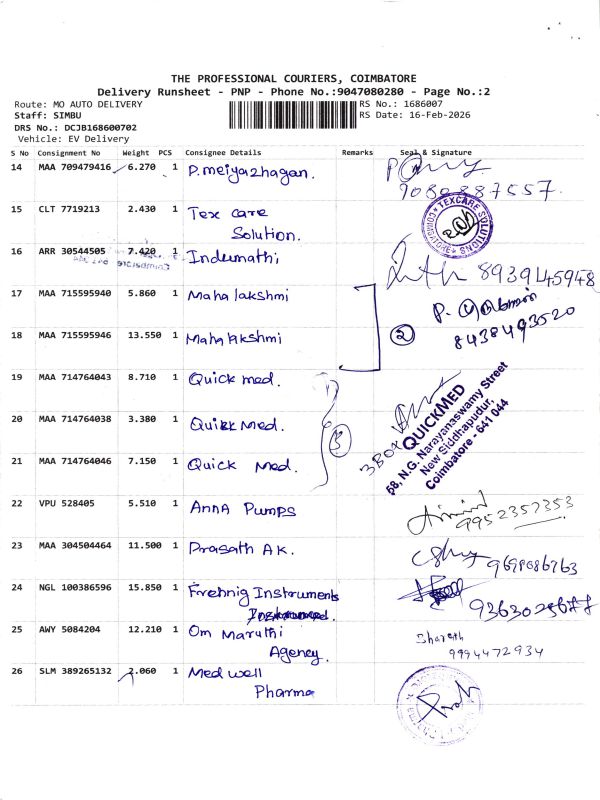 THE PROFESSIONAL COURIERS, COIMBATORE
Delivery Runsheet - PNP - Phone No.:9047080280 - Page No.:2
Route: MO AUTO DELIVERY RS No.: 1686007
Staff: SIMBU RS Date: 16-Feb-2026
DRS No.: DCJB168600702
Vehicle: EV Delivery
S No Consignment No Weight PCS Consignee Details Remarks Seal & Signature
14 MAA 709479416 6.270 1 P. meiyazhagan.
9080887557.
15 CLT 7719213 2.430 1 Tex care
Solution.
TEXCARE SOLUTIONS
16 ARR 30544505 7.420 1 Indumathi
8939145948
17 MAA 715595940 5.860 1 Mahalakshmi
P.
8438493520
18 MAA 715595946 13.550 1 Mahalakshmi
2
19 MAA 714764043 8.710 1 Quick med.
20 MAA 714764038 3.380 1 Quick Med.
3
3 BOX
QUICKMED
58, N.G. Narayanaswamy Street
New Siddhapudur,
Coimbatore - 641 044
21 MAA 714764046 7.150 1 Quick Med.
22 VPU 528405 5.510 1 Anna Pumps
9952357353
23 MAA 304504464 11.500 1 Prasath A K.
9698086763
24 NGL 100386596 15.850 1 Frehnig Instruments
25 AWY 5084204 12.210 1 Om Maruthi
Agency.
Bharath
9994472934
26 SLM 389265132 2.060 1 Med well
Pharma